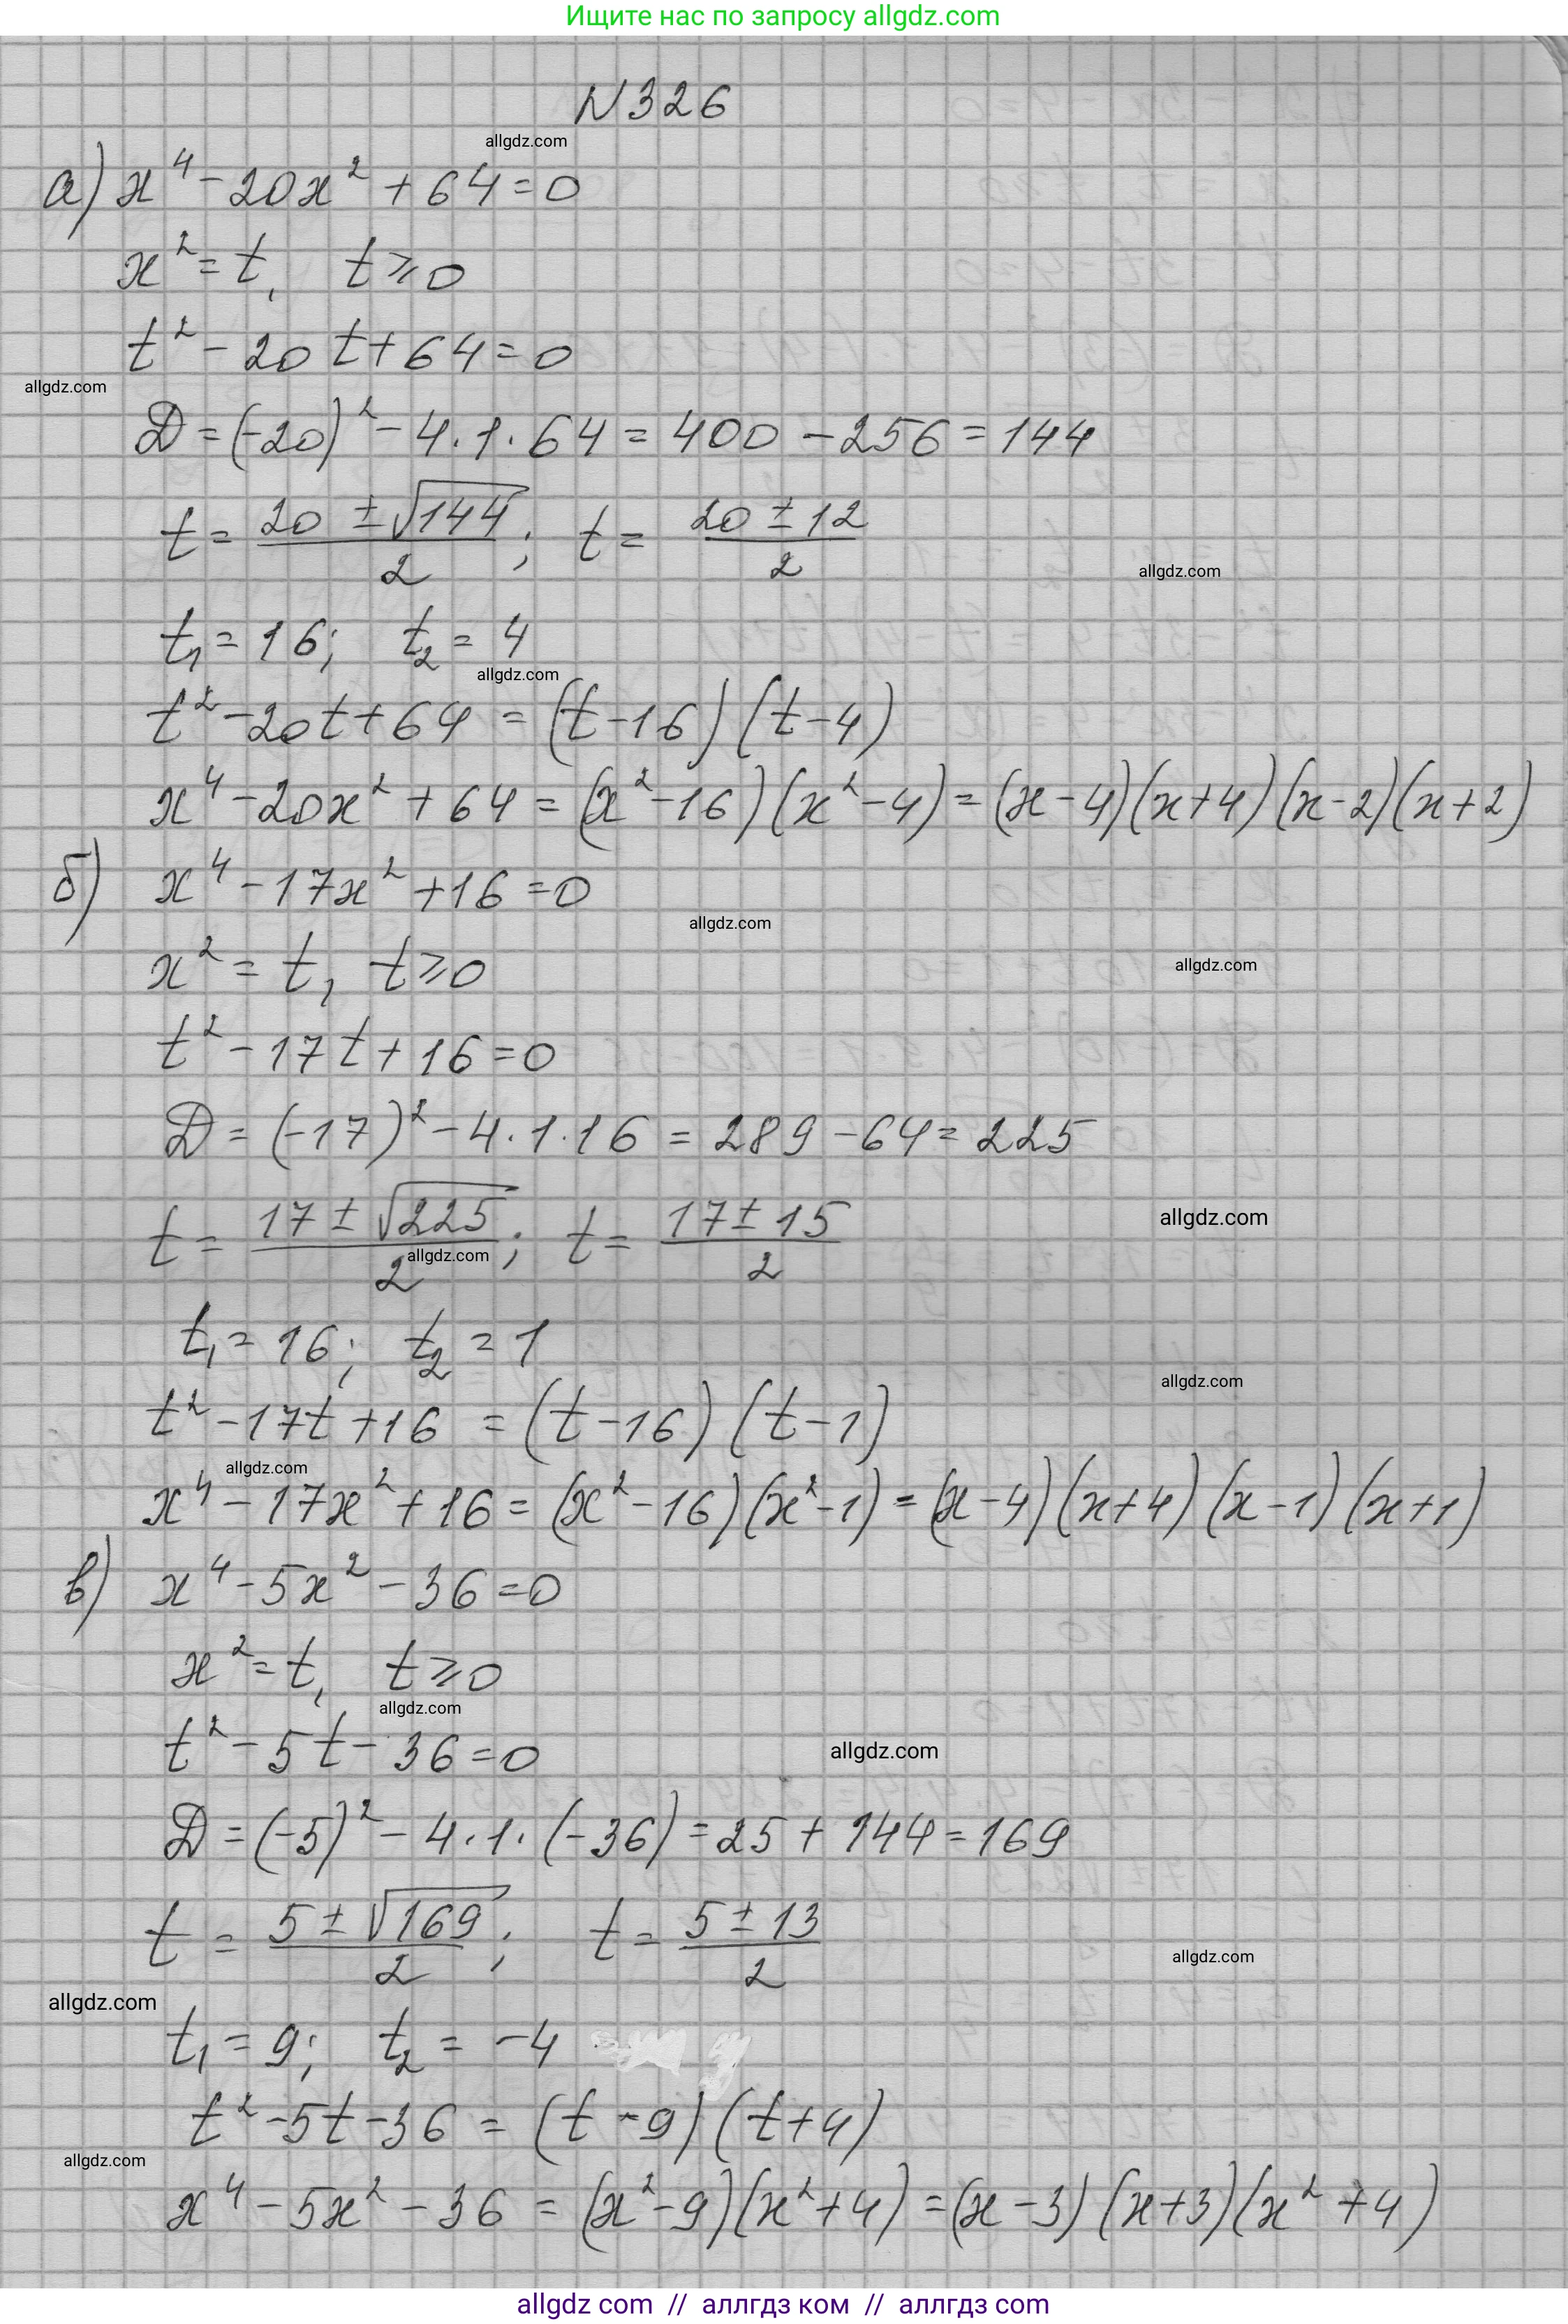 Ищите нас по запросу allgdz.com
N326
allgdz.com
а) x⁴ - 20x² + 64 = 0
x² = t, t ⩾ 0
t² - 20t + 64 = 0
allgdz.com
D = (-20)² - 4·1·64 = 400 - 256 = 144
t = (20 ± √144)/2; t = (20 ± 12)/2
allgdz.com
t₁ = 16; t₂ = 4
allgdz.com
t² - 20t + 64 = (t - 16)(t - 4)
x⁴ - 20x² + 64 = (x² - 16)(x² - 4) = (x - 4)(x + 4)(x - 2)(x + 2)
б) x⁴ - 17x² + 16 = 0
allgdz.com
x² = t, t ⩾ 0
allgdz.com
t² - 17t + 16 = 0
D = (-17)² - 4·1·16 = 289 - 64 = 225
t = (17 ± √225)/2; t = (17 ± 15)/2
allgdz.com
allgdz.com
t₁ = 16; t₂ = 1
allgdz.com
t² - 17t + 16 = (t - 16)(t - 1)
allgdz.com
x⁴ - 17x² + 16 = (x² - 16)(x² - 1) = (x - 4)(x + 4)(x - 1)(x + 1)
в) x⁴ - 5x² - 36 = 0
x² = t, t ⩾ 0
allgdz.com
t² - 5t - 36 = 0
allgdz.com
D = (-5)² - 4·1·(-36) = 25 + 144 = 169
t = (5 ± √169)/2; t = (5 ± 13)/2
allgdz.com
allgdz.com
t₁ = 9; t₂ = -4
t² - 5t - 36 = (t - 9)(t + 4)
allgdz.com
x⁴ - 5x² - 36 = (x² - 9)(x² + 4) = (x - 3)(x + 3)(x² + 4)
allgdz com // аллгдз ком // аллгдз com